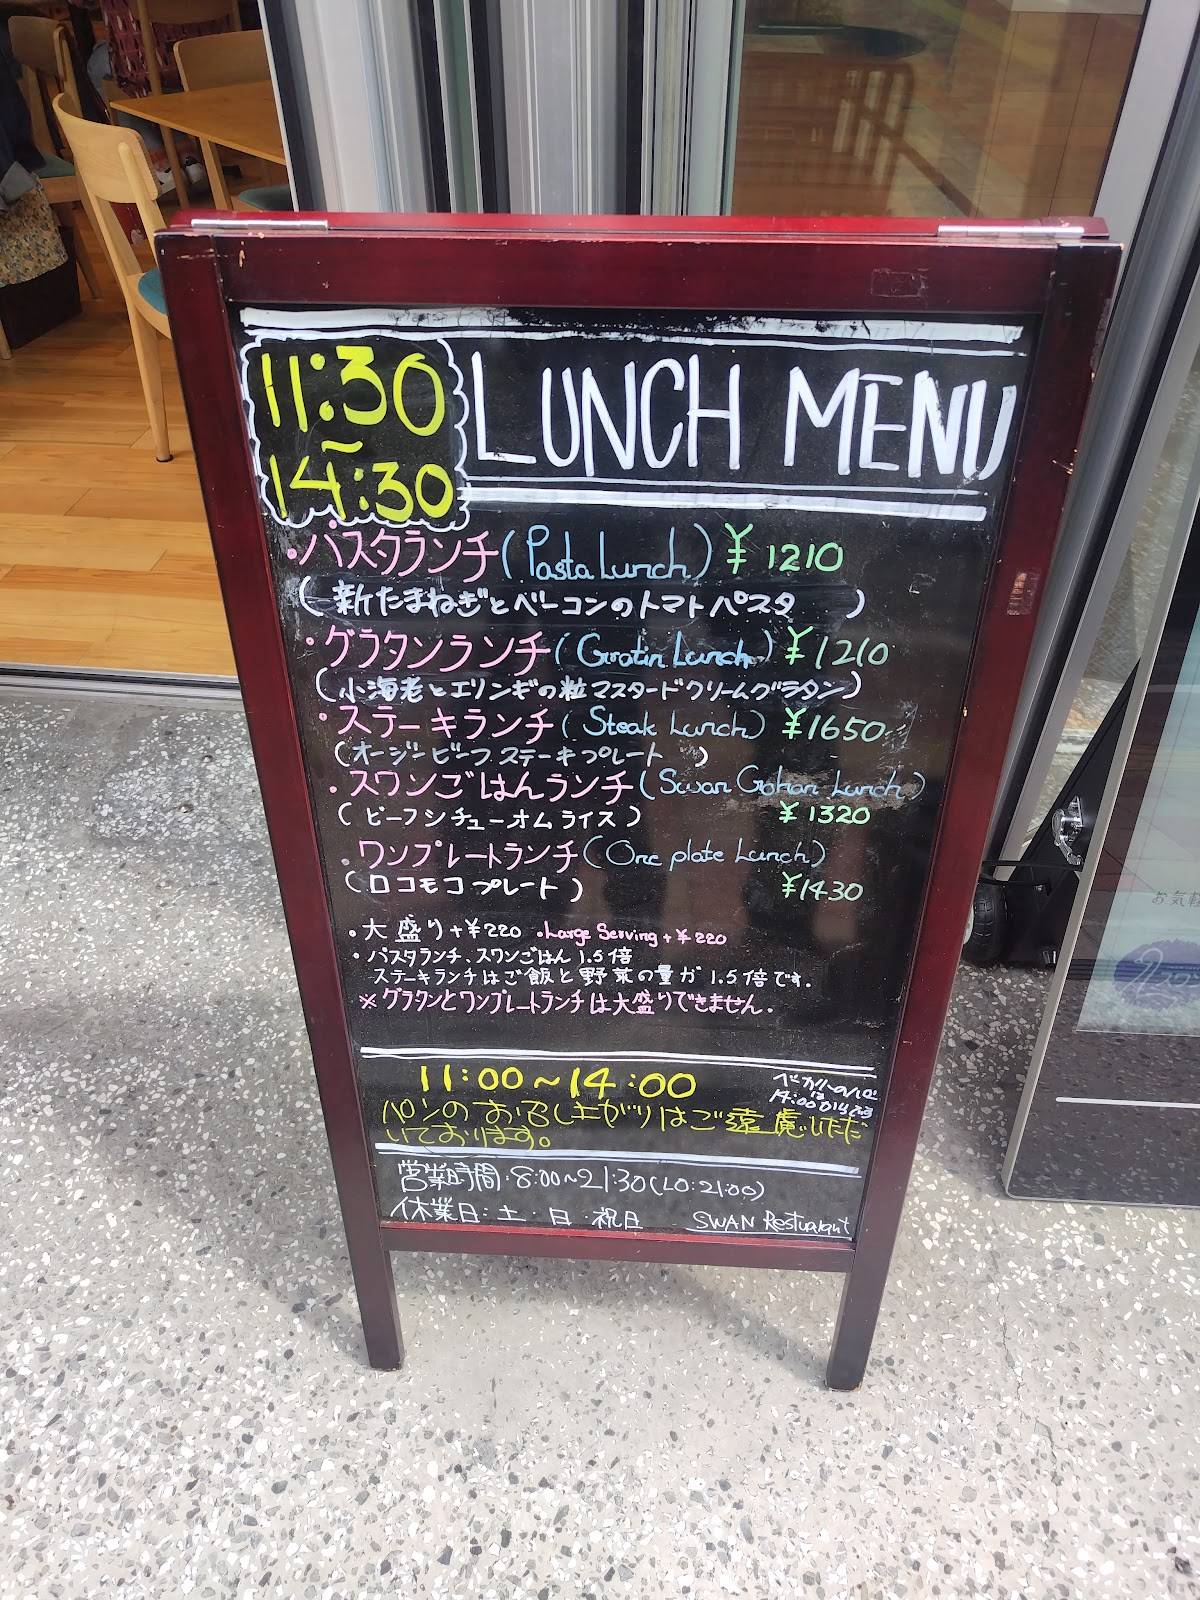 11:30
~
14:30
LUNCH MENU
・パスタランチ(Pasta Lunch) ¥1210
(新たまねぎとベーコンのトマトパスタ)
・グラタンランチ(Gratin Lunch) ¥1210
(小海老とエリンギの粒マスタードクリームグラタン)
・ステーキランチ(Steak Lunch) ¥1650
(オージービーフステーキプレート)
・スワンごはんランチ(Swan Gohan Lunch)
(ビーフシチューオムライス) ¥1320
・ワンプレートランチ(One plate Lunch)
(ロコモコプレート) ¥1430
・大盛り+¥220 ・Large Serving+¥220
・パスタランチ、スワンごはん 1.5倍
ステーキランチはご飯と野菜の量が1.5倍です.
※グラタンとワンプレートランチは大盛りできません.
11:00~14:00
14:00からです
パンのお召し上がりはご遠慮いただ
いております。
営業時間:8:00~21:30(LO:21:00)
休業日:土・日・祝日 SWAN Restuarant
お気軽